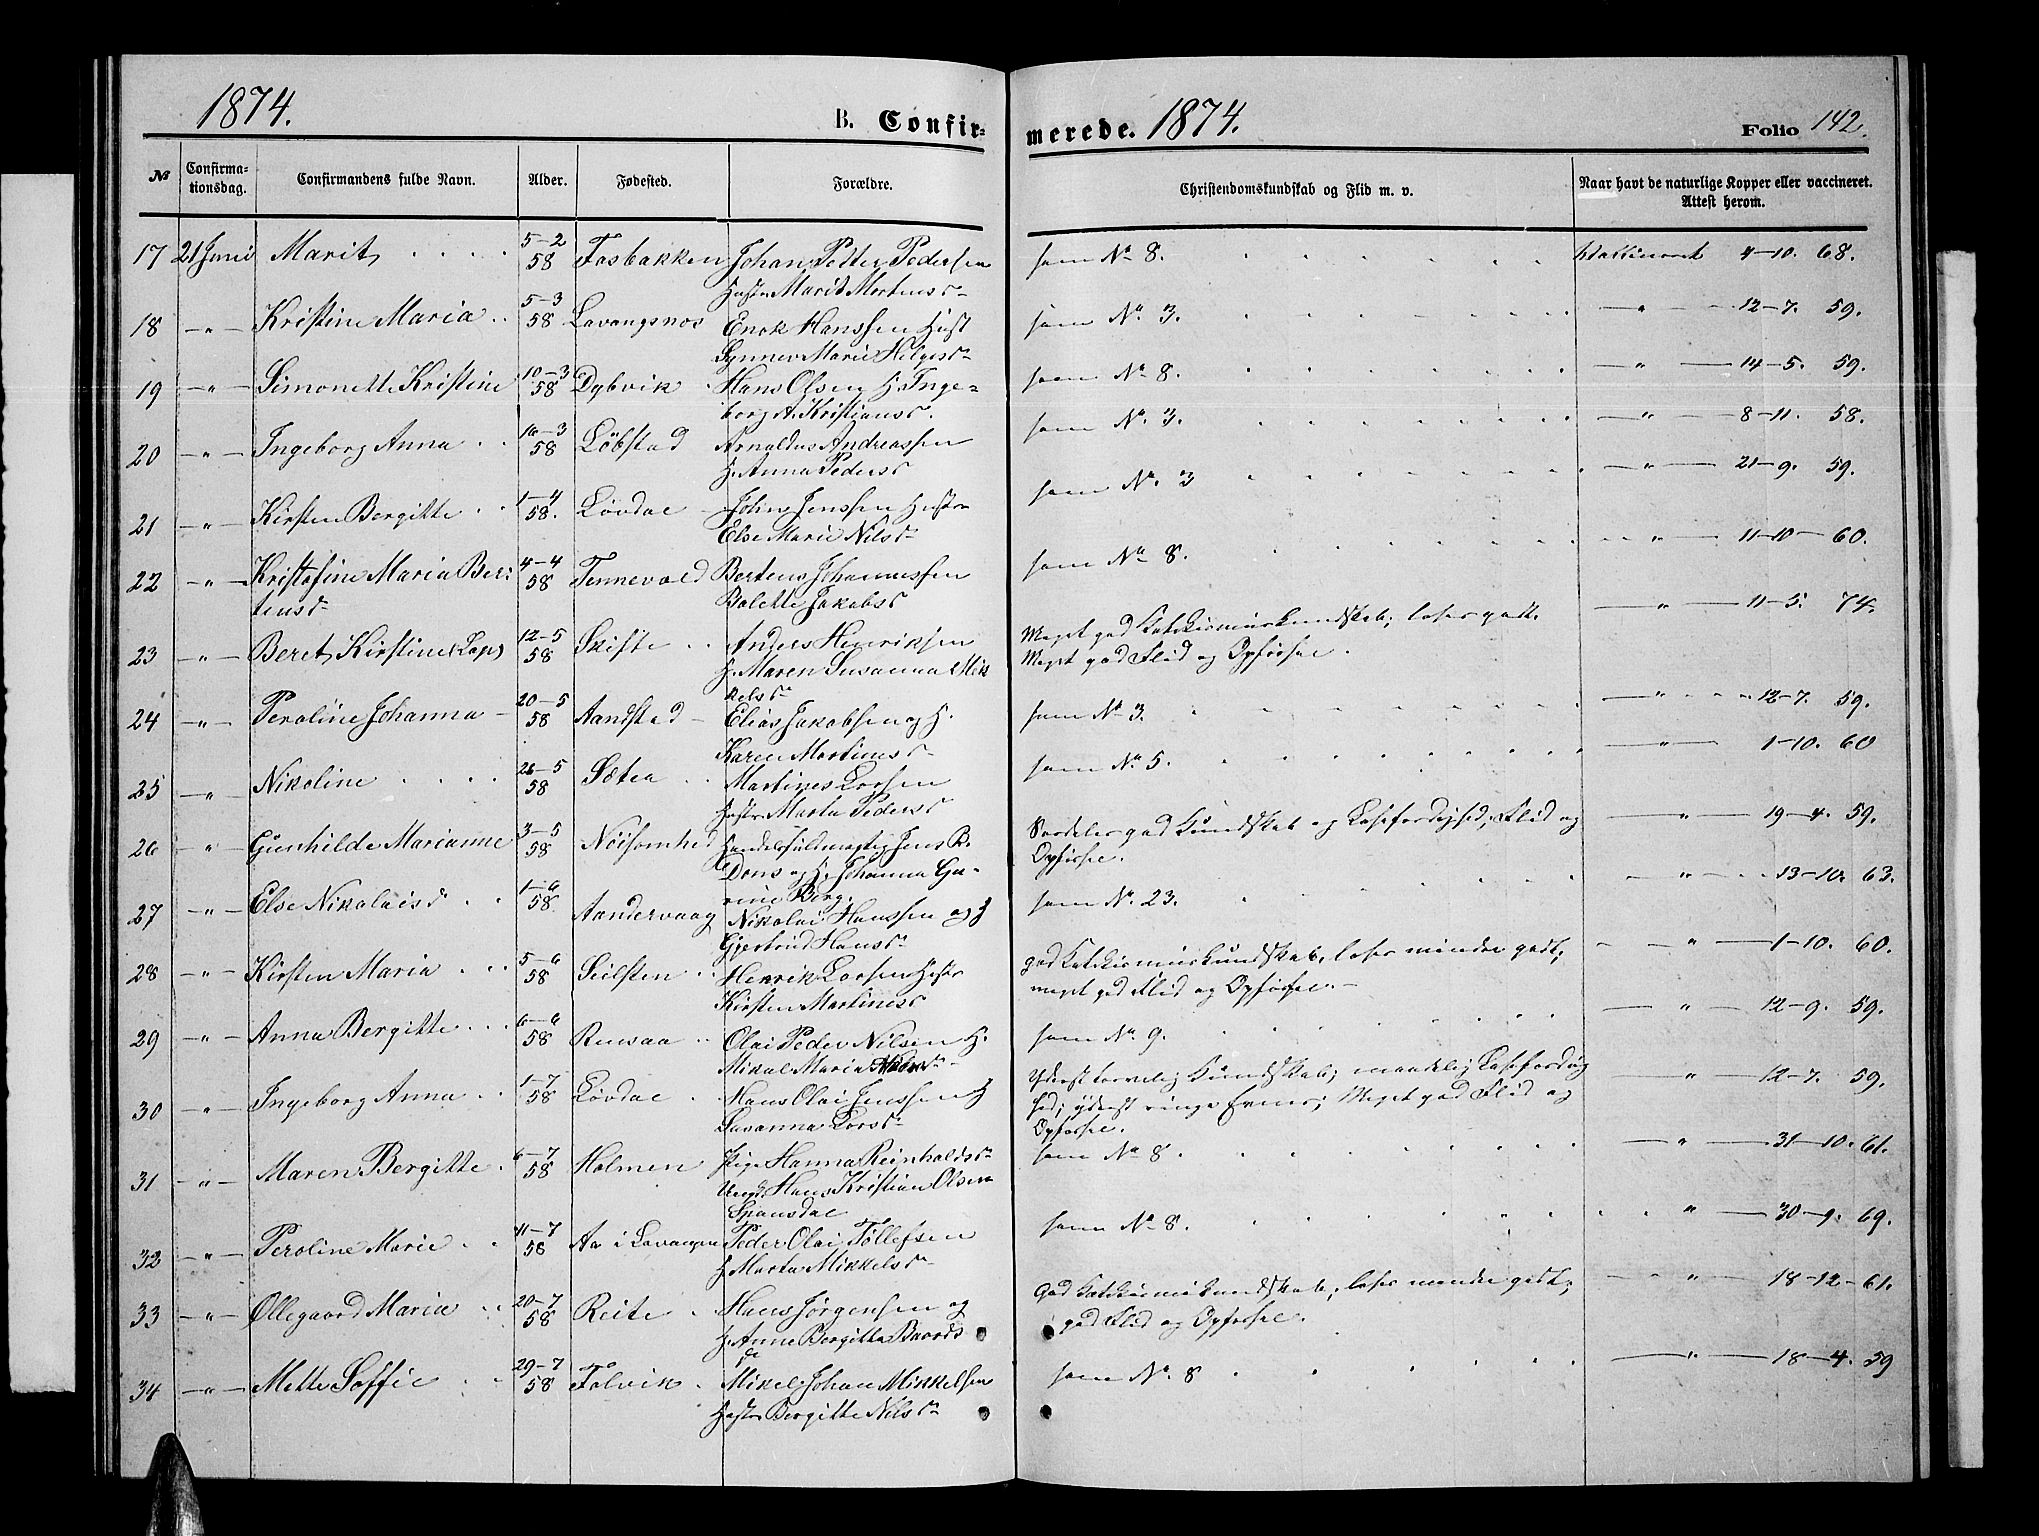 1874.
B. Confir-
merede. 1874.
Folio 142.
№ Confirmationsdag. Confirmandens fulde Navn. Alder. Fødested. Forældre. Christendomskundskab og Flid m. v. Naar havt de naturlige Kopper eller vaccineret. Attest herom.
17 21 Juni Marit 5-2 58 Fosbakken Johan Petter Pedersen som No 8. 4-10. 68.
Marit Mortensd
18 -"- Kristine Maria 5-3 58 Lavangsnes Enok Hanssen Hust som No 3. -"- 12-7. 59.
Synnev Marie Helgesd
19 -"- Simonette Kristine 10-3 58 Dybvik Hans Olsen H. Inge- som No 8. -"- 14-5. 59.
borg A. Kristiansd.
20 -"- Ingeborg Anna 16-3 58 Løbstad Arnoldus Andreassen som No. 3. -"- 8-11. 58.
H. Anna Pedersd
21 -"- Kirsten Bergitte 1-4 58. Løvdal Johns Jenssen Hustr som No. 3 -"- 21-9. 59.
Else Marie Nilsd
22 -"- Kristofine Maria Ber- 4-4 58 Tennevold Bertens Johannessen som No 8. " 11-10-60.
tensd Bolette Jakobsd
23 -"- Beret Kirstine (Lap) 12-5 58 Skifte Anders Henriksen Meget god Katekismuskundskab; læser godt. -"- 11-5. 74.
H. Maren Susanna Mik Meget god Flid og Opførsel.
kelsd
24 -"- Peroline Johanna 20-5 58 Aandstad Elias Jakobsen og H. som No 3. -"- 12-7. 59.
Karen Martinesd
25 -"- Nikoline 26-5 58 Sætea Martines Larsen som No. 5. -"- 1-10. 60
Hustr Marta Pedersd
26 " Gunhilde Marianne 3-5 58 Nøisomhed Handelsfuldmægtig Jens B. Særdeles god Kundskab og Læsefærdighed, Flid og " 19-4. 59.
Dons og H. Johanna Gu- Opførsel.
rine Berg.
27 -"- Else Nikolaisd 1-6 58. Aandervaag Nikolai Hanssen og H som No. 23. -"- 13-10. 63.
Gjertrud Hansd
28 -"- Kirsten Maria 5-6 58 Seilsten Henrik Larsen Hustr god Katekismuskundskab, læser mindre godt; -"- 1-10. 60.
Kirsten Martinesd meget god Flid og Opførsel.
29 -"- Anna Bergitte 6-6 58 Rensaa Olai Peder Nilsen H. som No 9. " 12-9. 59.
Mikal Maria
30 -"- Ingeborg Anna 1-7 58 Løvdal Hans Olai Jenssen H Yderst tarvelig Kundskab; maadelig Læsefærdig " 12-7. 59.
Susanna Larsd hed; yderst ringe Evner; Meget god Flid og
Opførsel.
31 -"- Maren Bergitte 6-7 58 Holmen Pige Hanna Reinholdsd som No 8. " 31-10. 61.
Ungk. Hans Kristian Olsen
Spansdal
32 -"- Peroline Marie 11-7 58 Aa i Lavangen Peder Olai Tollefsen som No 8. " 30-9. 69.
H Marta Mikkelsd
33 -"- Ollegaard Maria 20-7 58 Reite Hans Jørgensen og God Katekismuskundskab, læser mindre godt; -"- 18-12-61.
H. Anne Bergitta Baards god Flid og Opførsel.
d
34 -"- Mette Soffie 29-7 58 Folvik Mikel Johan Mikkelsen som No. 8 -"- 18-4. 59
Hustr Bergitte Nilsd